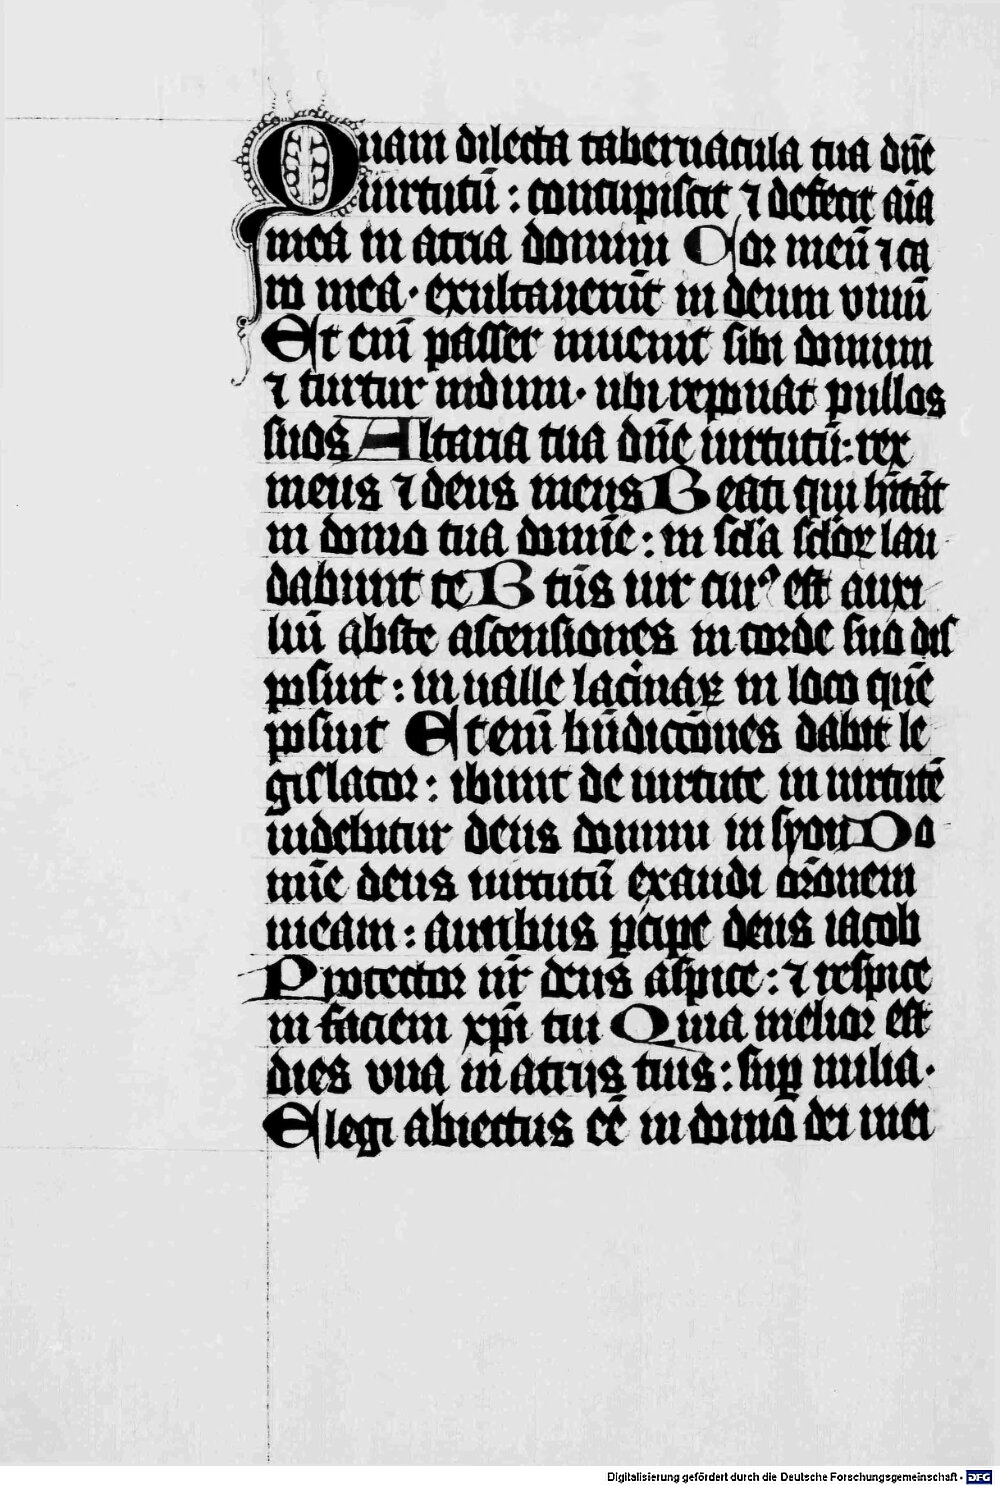 Quam dilecta tabernacula tua dn̄e
uirtutū : concupiscit ⁊ defecit aīa
mea in atria domini Cor meū ⁊ ca
ro mea · exultauerūt in deum viuū
Et enī passer inuenit sibi domum
⁊ turtur nidum · ubi reponat pullos
suos Altaria tua dn̄e uirtutū : rex
meus ⁊ deus meus Beati qui hītāt
in domo tua domīe : in scl̄a scl̄oꝝ lau
dabunt te Btūs uir cuiꝰ est auxi
liū abs te ascensiones in corde suo dis
posuit : in ualle lacrīaꝝ in loco quē
posuit Etenī bn̄dictōnes dabit le
gislator : ibunt de uirtute in uirtutē
uidebitur deus deorum in syon Do
mīe deus uirtutū exaudi orōnem
meam : auribus ꝑcipe deus iacob
Protector nr̄ deus aspice : ⁊ respice
in faciem xp̄i tui Quia melior est
dies vna in atrijs tuis : suꝑ milia ·
Elegi abiectus eē in domo dei mei
Digitalisierung gefördert durch die Deutsche Forschungsgemeinschaft - DFG